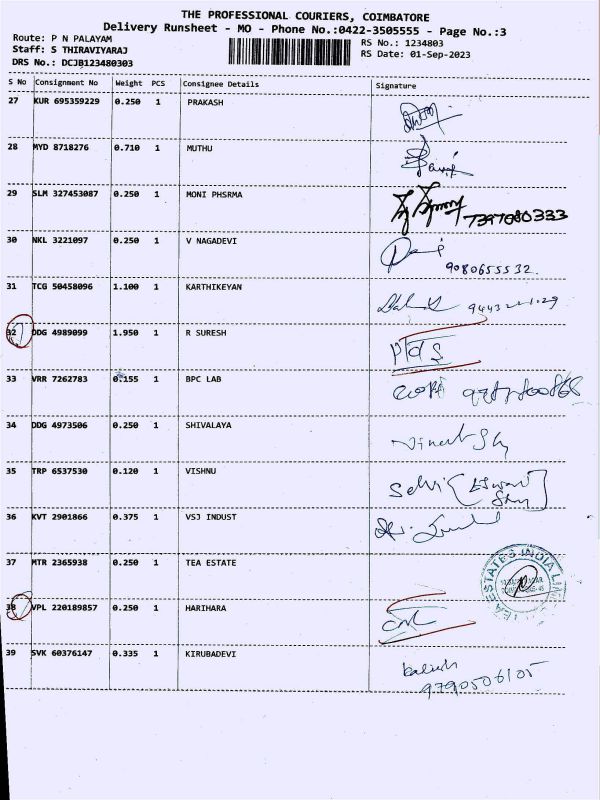 THE PROFESSIONAL COURIERS, COIMBATORE
Delivery Runsheet - MO - Phone No.:0422-3505555 - Page No.:3
Route: P N PALAYAM
Staff: S THIRAVIYARAJ
DRS No.: DCJB123480303
RS No.: 1234803
RS Date: 01-Sep-2023
S No Consignment No Weight PCS Consignee Details Signature
27 KUR 695359229 0.250 1 PRAKASH
28 MYD 8718276 0.710 1 MUTHU
29 SLM 327453087 0.250 1 MONI PHSRMA 7397080333
30 NKL 3221097 0.250 1 V NAGADEVI
9080655532.
31 TCG 50458096 1.100 1 KARTHIKEYAN
32 DDG 4989099 1.950 1 R SURESH
33 VRR 7262783 0.155 1 BPC LAB
34 DDG 4973506 0.250 1 SHIVALAYA
35 TRP 6537530 0.120 1 VISHNU Selvi
36 KVT 2901866 0.375 1 VSJ INDUST
37 MTR 2365938 0.250 1 TEA ESTATE
38 VPL 220189857 0.250 1 HARIHARA
39 SVK 60376147 0.335 1 KIRUBADEVI
9790506105